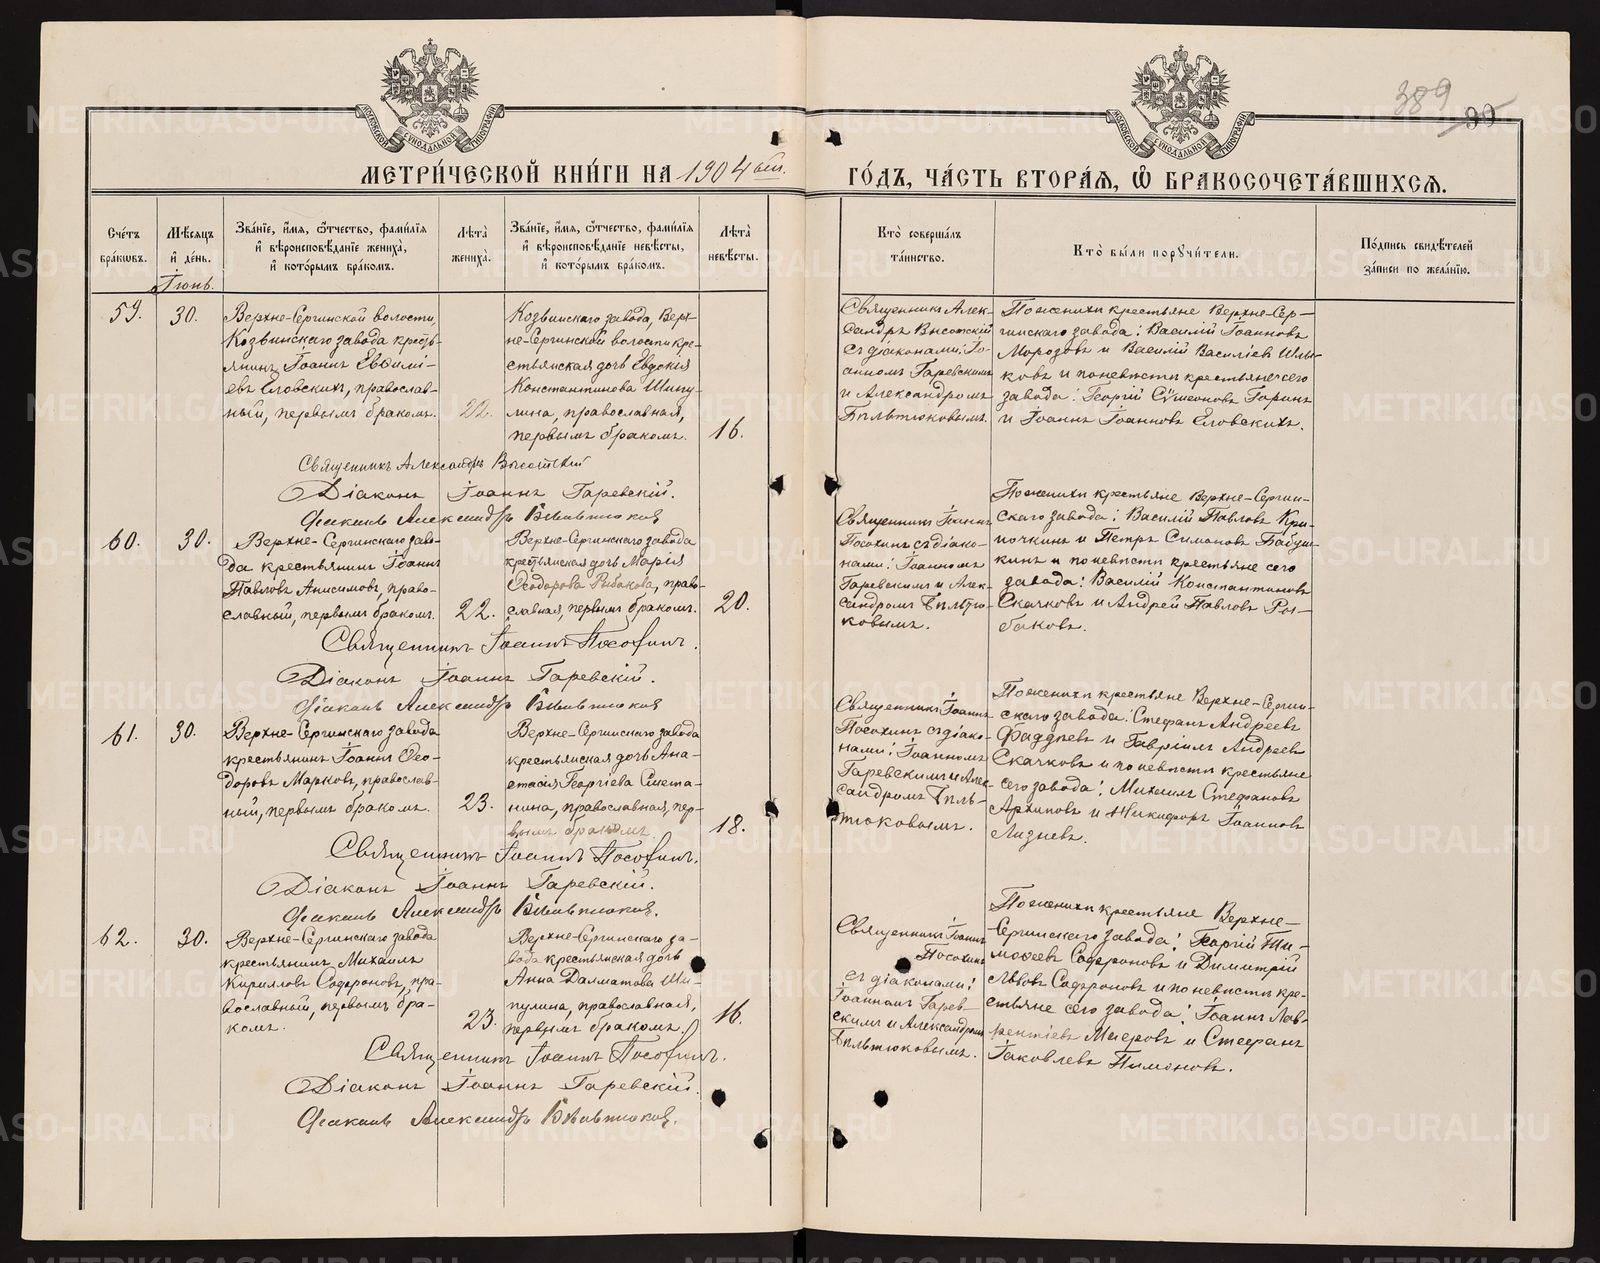 389
МЕТРИ́ЧЕСКОЙ КНИ́ГИ НА 1904 ый.
ГО́ДЪ, ЧА́СТЬ ВТОРА́Я, Ѡ БРАКОСОЧЕТА́ВШИХСЯ.
Сче́тъ бра́кѡвъ.
Мѣ́сяцъ и́ де́нь.
Зва́нїе, и́мя, ѻ́тчество, фами́лїя и́ вѣроисповѣ́данїе жениха̀, и́ кото́рымъ бра́комъ.
Лѣ́та жениха̀.
Зва́нїе, и́мя, ѻ́тчество, фами́лїя и́ вѣроисповѣ́данїе невѣ́сты, и́ кото́рымъ бра́комъ.
Лѣ́та невѣ́сты.
Кто̀ соверша́лъ та́инство.
Кто̀ бы́ли порꙋчи́тели.
По́дпись свидѣ́телей за́писи по жела́нїю.
Іюнь.
59.
30.
Верхне-Сергинской волости,
Козвинскаго завода кресть-
янинъ Іоаннъ Евѳимі-
евъ Еловскихъ, православ-
ный, первымъ бракомъ.
22.
Козвинскаго завода, Верх-
не-Сергинской волости кре-
стьянская дочь Евдокія
Константинова Шипу-
лина, православная,
первымъ бракомъ.
16.
Священникъ Алек-
сандръ Высотскій
съ діаконами: Іо-
анномъ Гаревскимъ
и Александромъ
Бѣльтюковымъ.
По женихѣ крестьяне Верхне-Сер-
гинскаго завода: Василій Іоанновъ
Морозовъ и Василій Васильевъ
и по невѣстѣ крестьяне сего
завода: Георгій Сѵмеоновъ Горинъ
и Іоаннъ Іоанновъ Еловскихъ.
Священникъ Александръ Высотскій
Діаконъ Іоаннъ Гаревскій.
Діаконъ Александръ Бѣльтюковъ
60.
30.
Верхне-Сергинскаго заво-
да крестьянинъ Іоаннъ
Павловъ Анисимовъ, право-
славный, первымъ бракомъ.
22.
Верхне-Сергинскаго завода
крестьянская дочь Марія
Ѳеодорова Рыбакова, право-
славная, первымъ бракомъ.
20.
Священникъ Іоаннъ
Посохинъ съ діако-
нами: Іоанномъ
Гаревскимъ и Алек-
сандромъ Бѣльтю-
ковымъ.
По женихѣ крестьяне Верхне-Сергин-
скаго завода: Василій Павловъ Кри-
ночкинъ и Петръ Симоновъ Бабуш-
кинъ и по невѣстѣ крестьяне сего
завода: Василій Константиновъ
Скачковъ и Андрей Павловъ Ры-
баковъ.
Священникъ Іоаннъ Посохинъ.
Діаконъ Іоаннъ Гаревскій.
Діаконъ Александръ Бѣльтюковъ
61.
30.
Верхне-Сергинскаго завода
крестьянинъ Іоаннъ Ѳео-
доровъ Марковъ, православ-
ный, первымъ бракомъ.
23.
Верхне-Сергинскаго завода
крестьянская дочь Ана-
стасія Георгіева Смета-
нина, православная, пер-
вымъ бракомъ.
18.
Священникъ Іоаннъ
Посохинъ съ діако-
нами: Іоанномъ
Гаревскимъ и Алек-
сандромъ Бѣль-
тюковымъ.
По женихѣ крестьяне Верхне-Сергин-
скаго завода: Стефанъ Андреевъ
Фаддѣевъ и Гавріилъ Андреевъ
Скачковъ и по невѣстѣ крестьяне
сего завода: Михаилъ Стефановъ
Архиповъ и Никифоръ Іоанновъ
Лизневъ.
Священникъ Іоаннъ Посохинъ.
Діаконъ Іоаннъ Гаревскій.
Діаконъ Александръ Бѣльтюковъ.
62.
30.
Верхне-Сергинскаго завода
крестьянинъ Михаилъ
Кирилловъ Софроновъ, пра-
вославный, первымъ бра-
комъ.
23.
Верхне-Сергинскаго за-
вода крестьянская дочь
Анна Далматова Ши-
пулина, православная,
первымъ бракомъ.
16.
Священникъ Іоаннъ
Посохинъ
съ діаконами:
Іоанномъ Гарев-
скимъ и Александромъ
Бѣльтюковымъ.
По женихѣ крестьяне Верхне-
Сергинскаго завода: Георгій Ти-
моѳеевъ Софроновъ и Димитрій
Львовъ Софроновъ и по невѣстѣ кре-
стьяне сего завода: Іоаннъ Лав-
рентіевъ и Стефанъ
Іаковлевъ Пимоновъ.
Священникъ Іоаннъ Посохинъ.
Діаконъ Іоаннъ Гаревскій.
Діаконъ Александръ Бѣльтюковъ.
METRIKI.GASO-URAL.RU